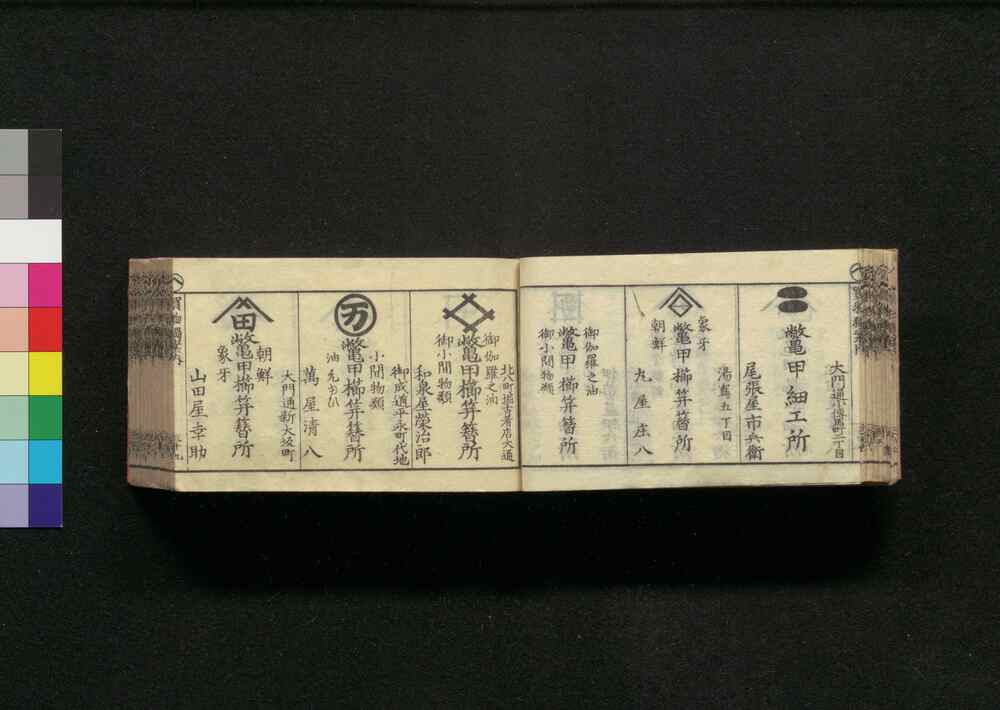 大門通小傳馬町二丁目
鼈甲細工所
尾張屋市兵衛
湯嶌五丁目
象牙
鼈甲櫛笄簪所
朝鮮
九屋庄八
御伽羅之油
鼈甲櫛笄簪所
御小間物類
北八町堀古着店大通
御伽羅之油
鼈甲櫛笄簪所
御小間物類
和泉屋榮治郎
御成道平永町代地
小間物類
万
鼈甲櫛笄簪所
油元ゆひ
萬屋清八
大門通新大坂町
朝鮮
田
鼈甲櫛笄簪所
象牙
山田屋幸助